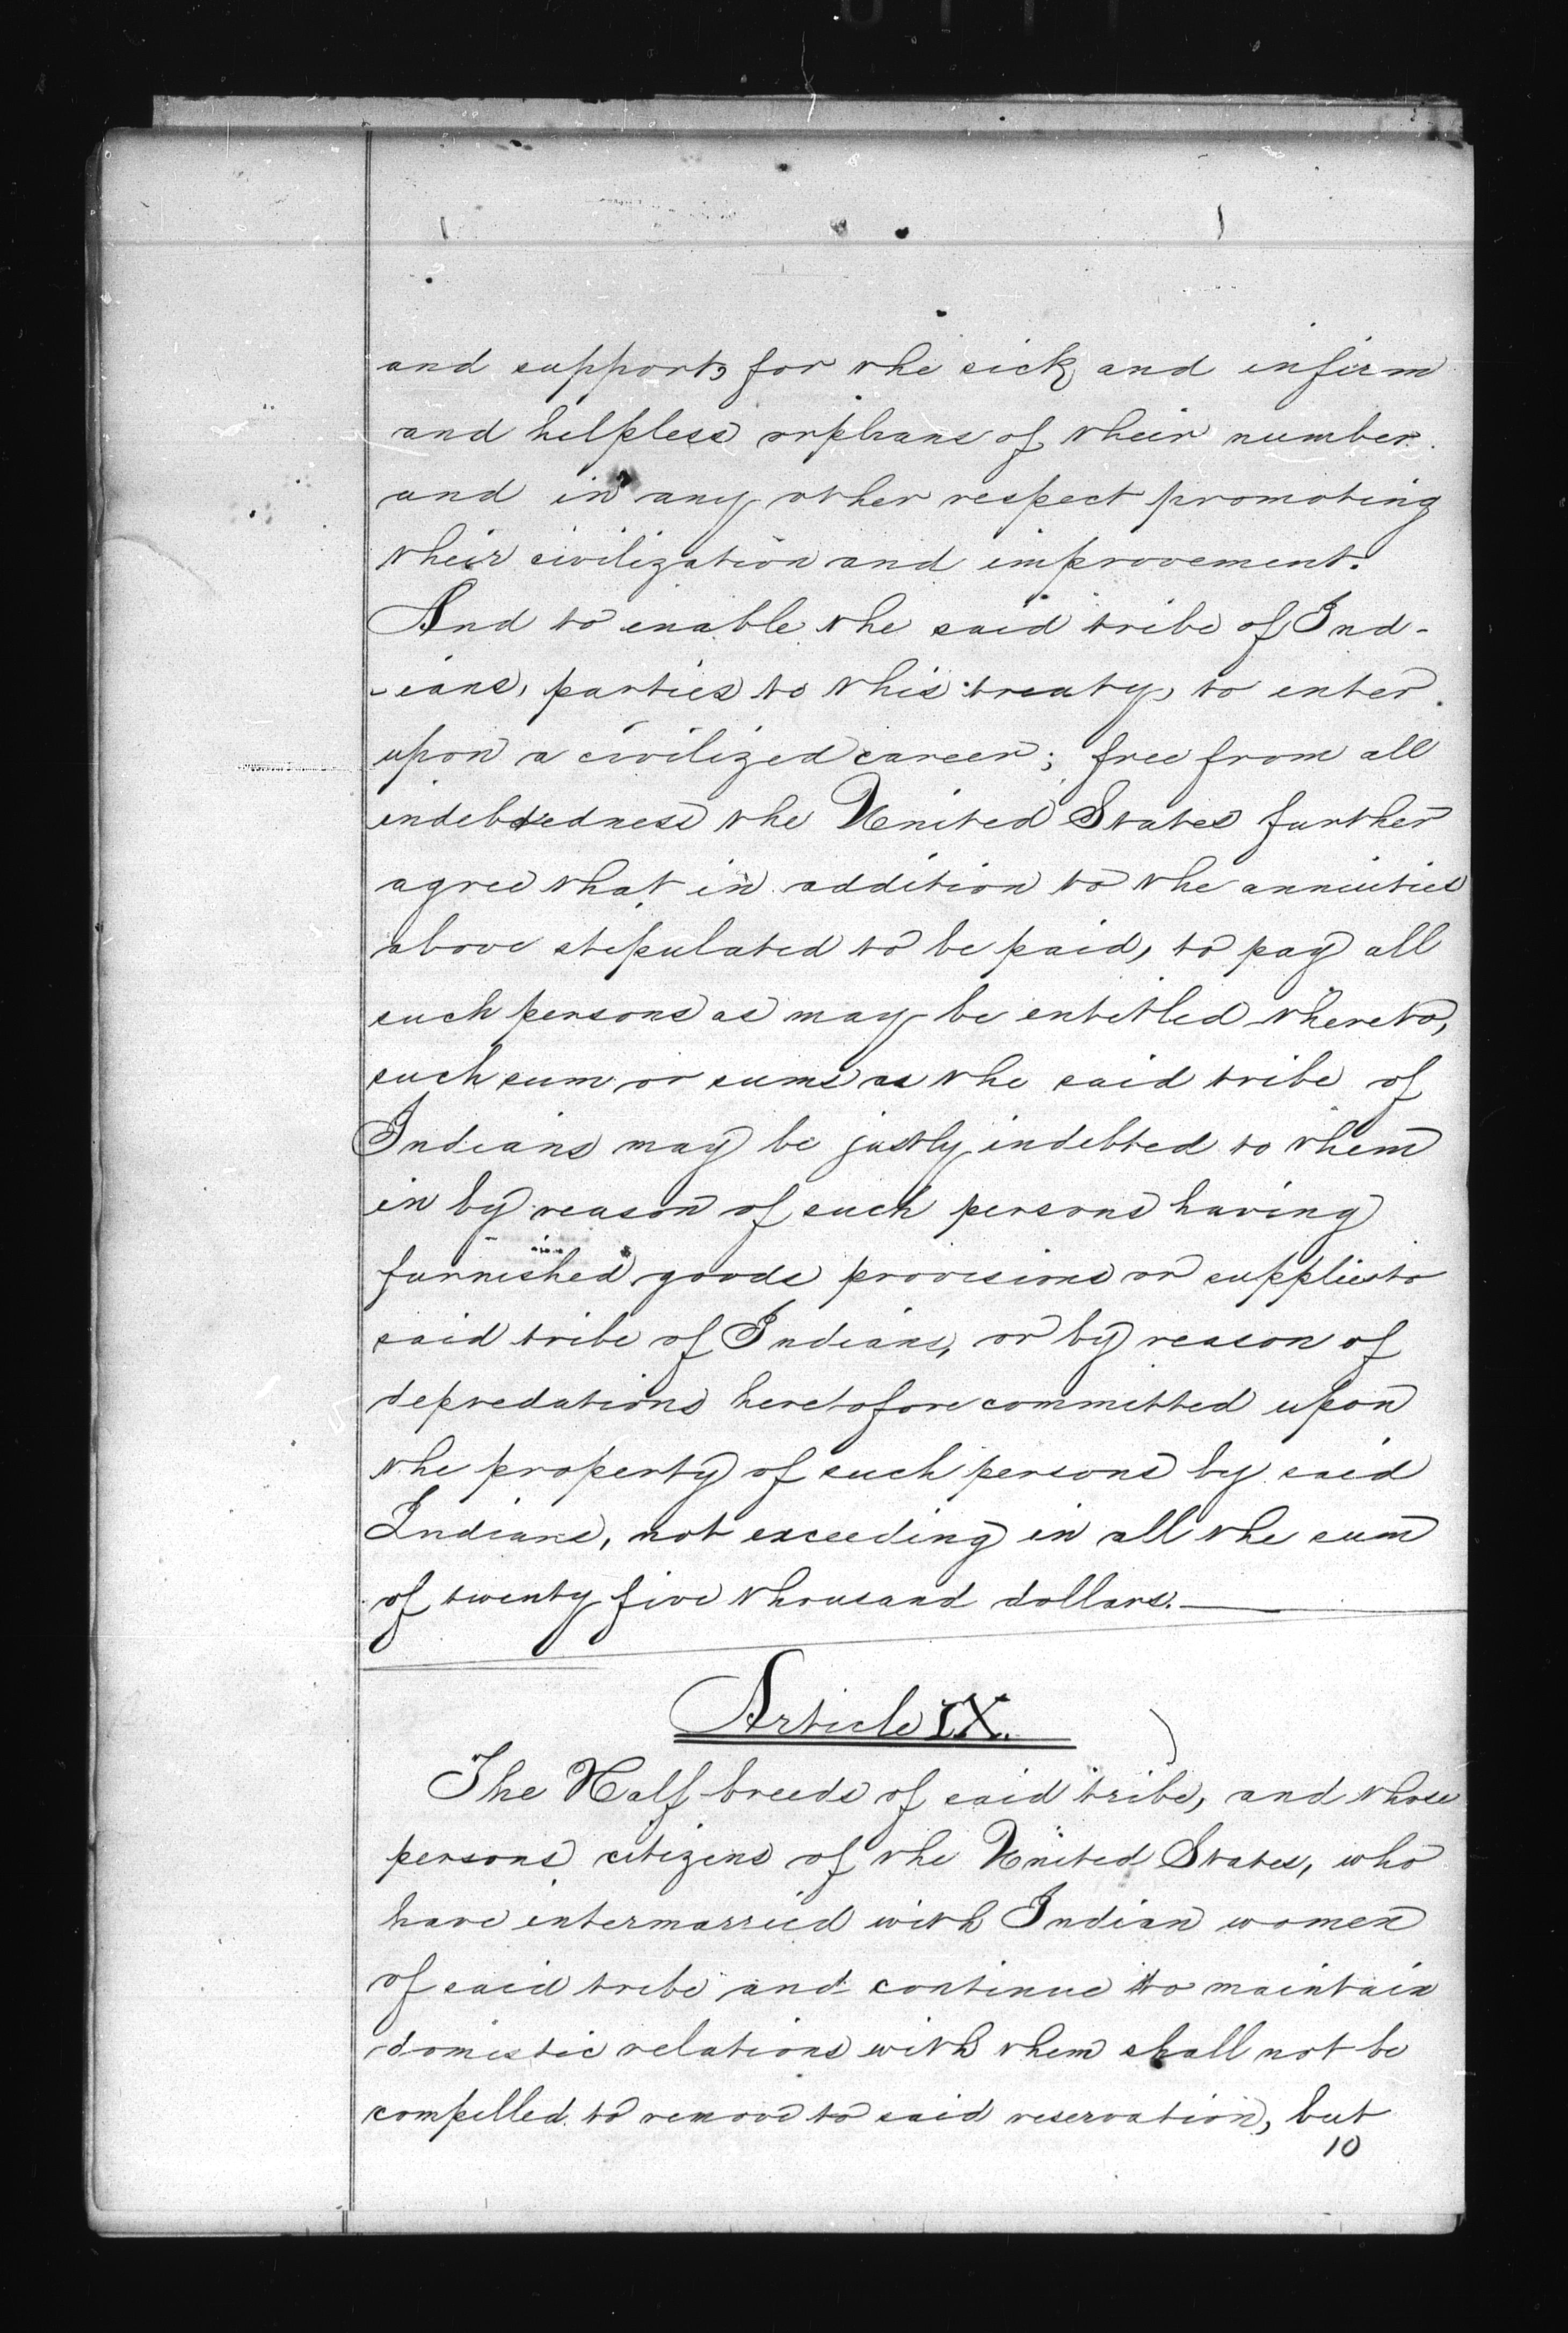 and support, for the sick and infirm
and helpless orphans of their number.
and in any other respect promoting
their civilization and improvement.
And to enable the said tribe of Ind-
-ians, parties to this treaty, to enter
upon a civilized career; free from all
indebtedness the United States further
agree that in addition to the annuities
above stipulated to be paid, to pay all
such persons as may be entitled thereto,
such sum or sums as the said tribe of
Indians may be justly indebted to them
in by reason of such persons having
furnished goods provisions or supplies to
said tribe of Indians, or by reason of
depredations heretofore committed upon
the property of such persons by said
Indians, not exceeding in all the sum
of twenty five thousand dollars.
Article IX.
The Half breeds of said tribe, and those
persons citizens of the United States, who
have intermarried with Indian women
of said tribe and continue to maintain
domestic relations with them shall not be
compelled to remove to said reservation, but
10